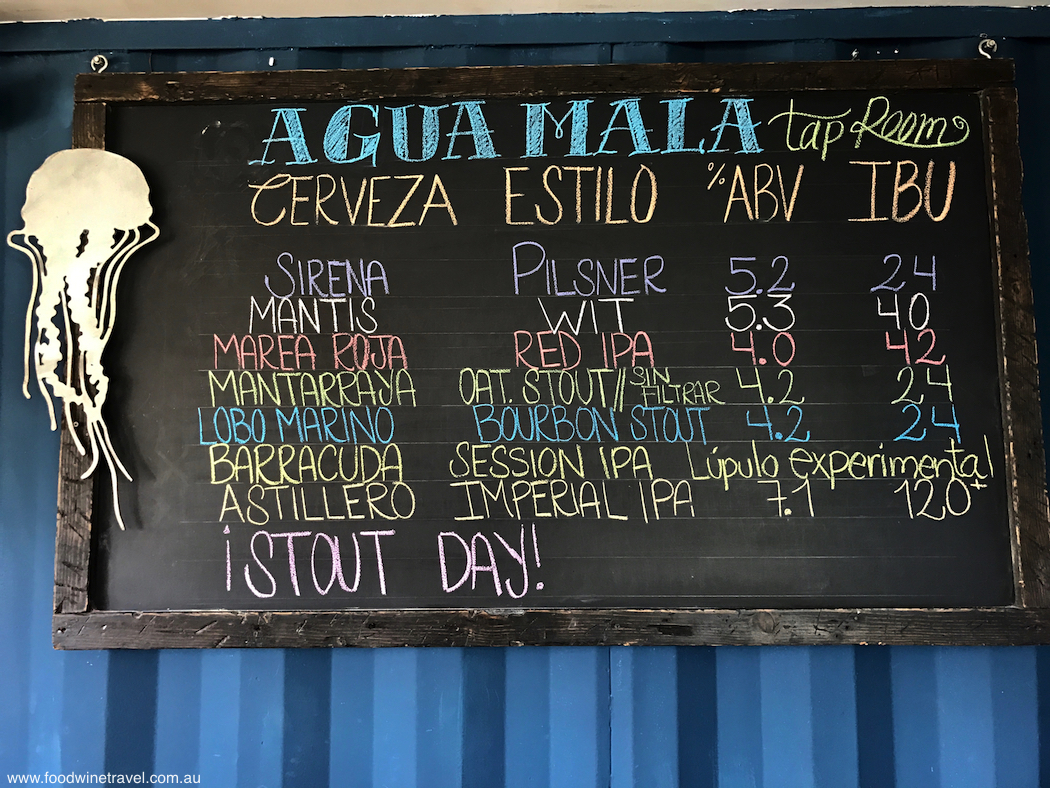 AGUA MALA tap Room
CERVEZA ESTILO %ABV IBU
SIRENA PILSNER 5.2 24
MANTIS WIT 5.3 40
MAREA ROJA RED IPA 4.0 42
MANTARRAYA OAT. STOUT// SIN FILTRAR 4.2 24
LOBO MARINO BOURBON STOUT 4.2 24
BARRACUDA SESSION IPA Lúpulo experimental
ASTILLERO IMPERIAL IPA 7.1 120+
¡STOUT DAY!
www.foodwinetravel.com.au